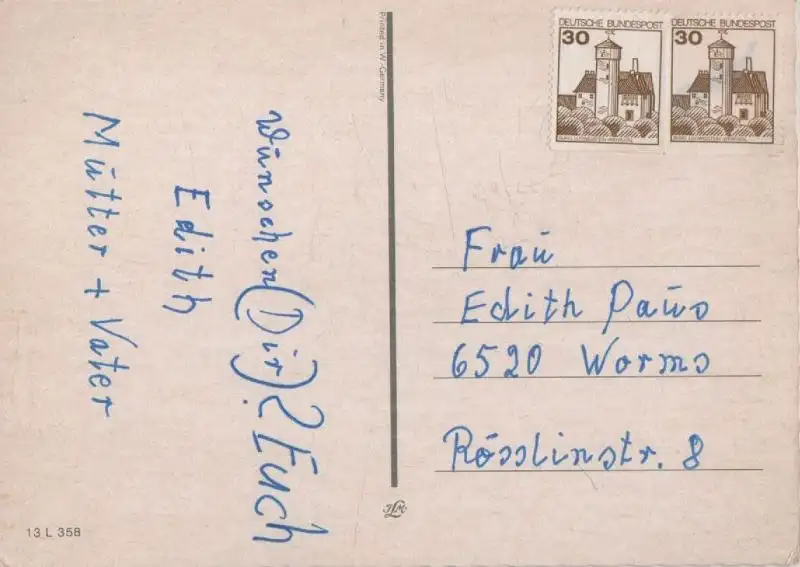 Printed in W.-Germany
wünschen (Dir)? Euch
Edith
Mutter + Vater
13 L 358
DEUTSCHE BUNDESPOST
30
DEUTSCHE BUNDESPOST
30
Frau
Edith Paus
6520 Worms
Rösslinstr. 8